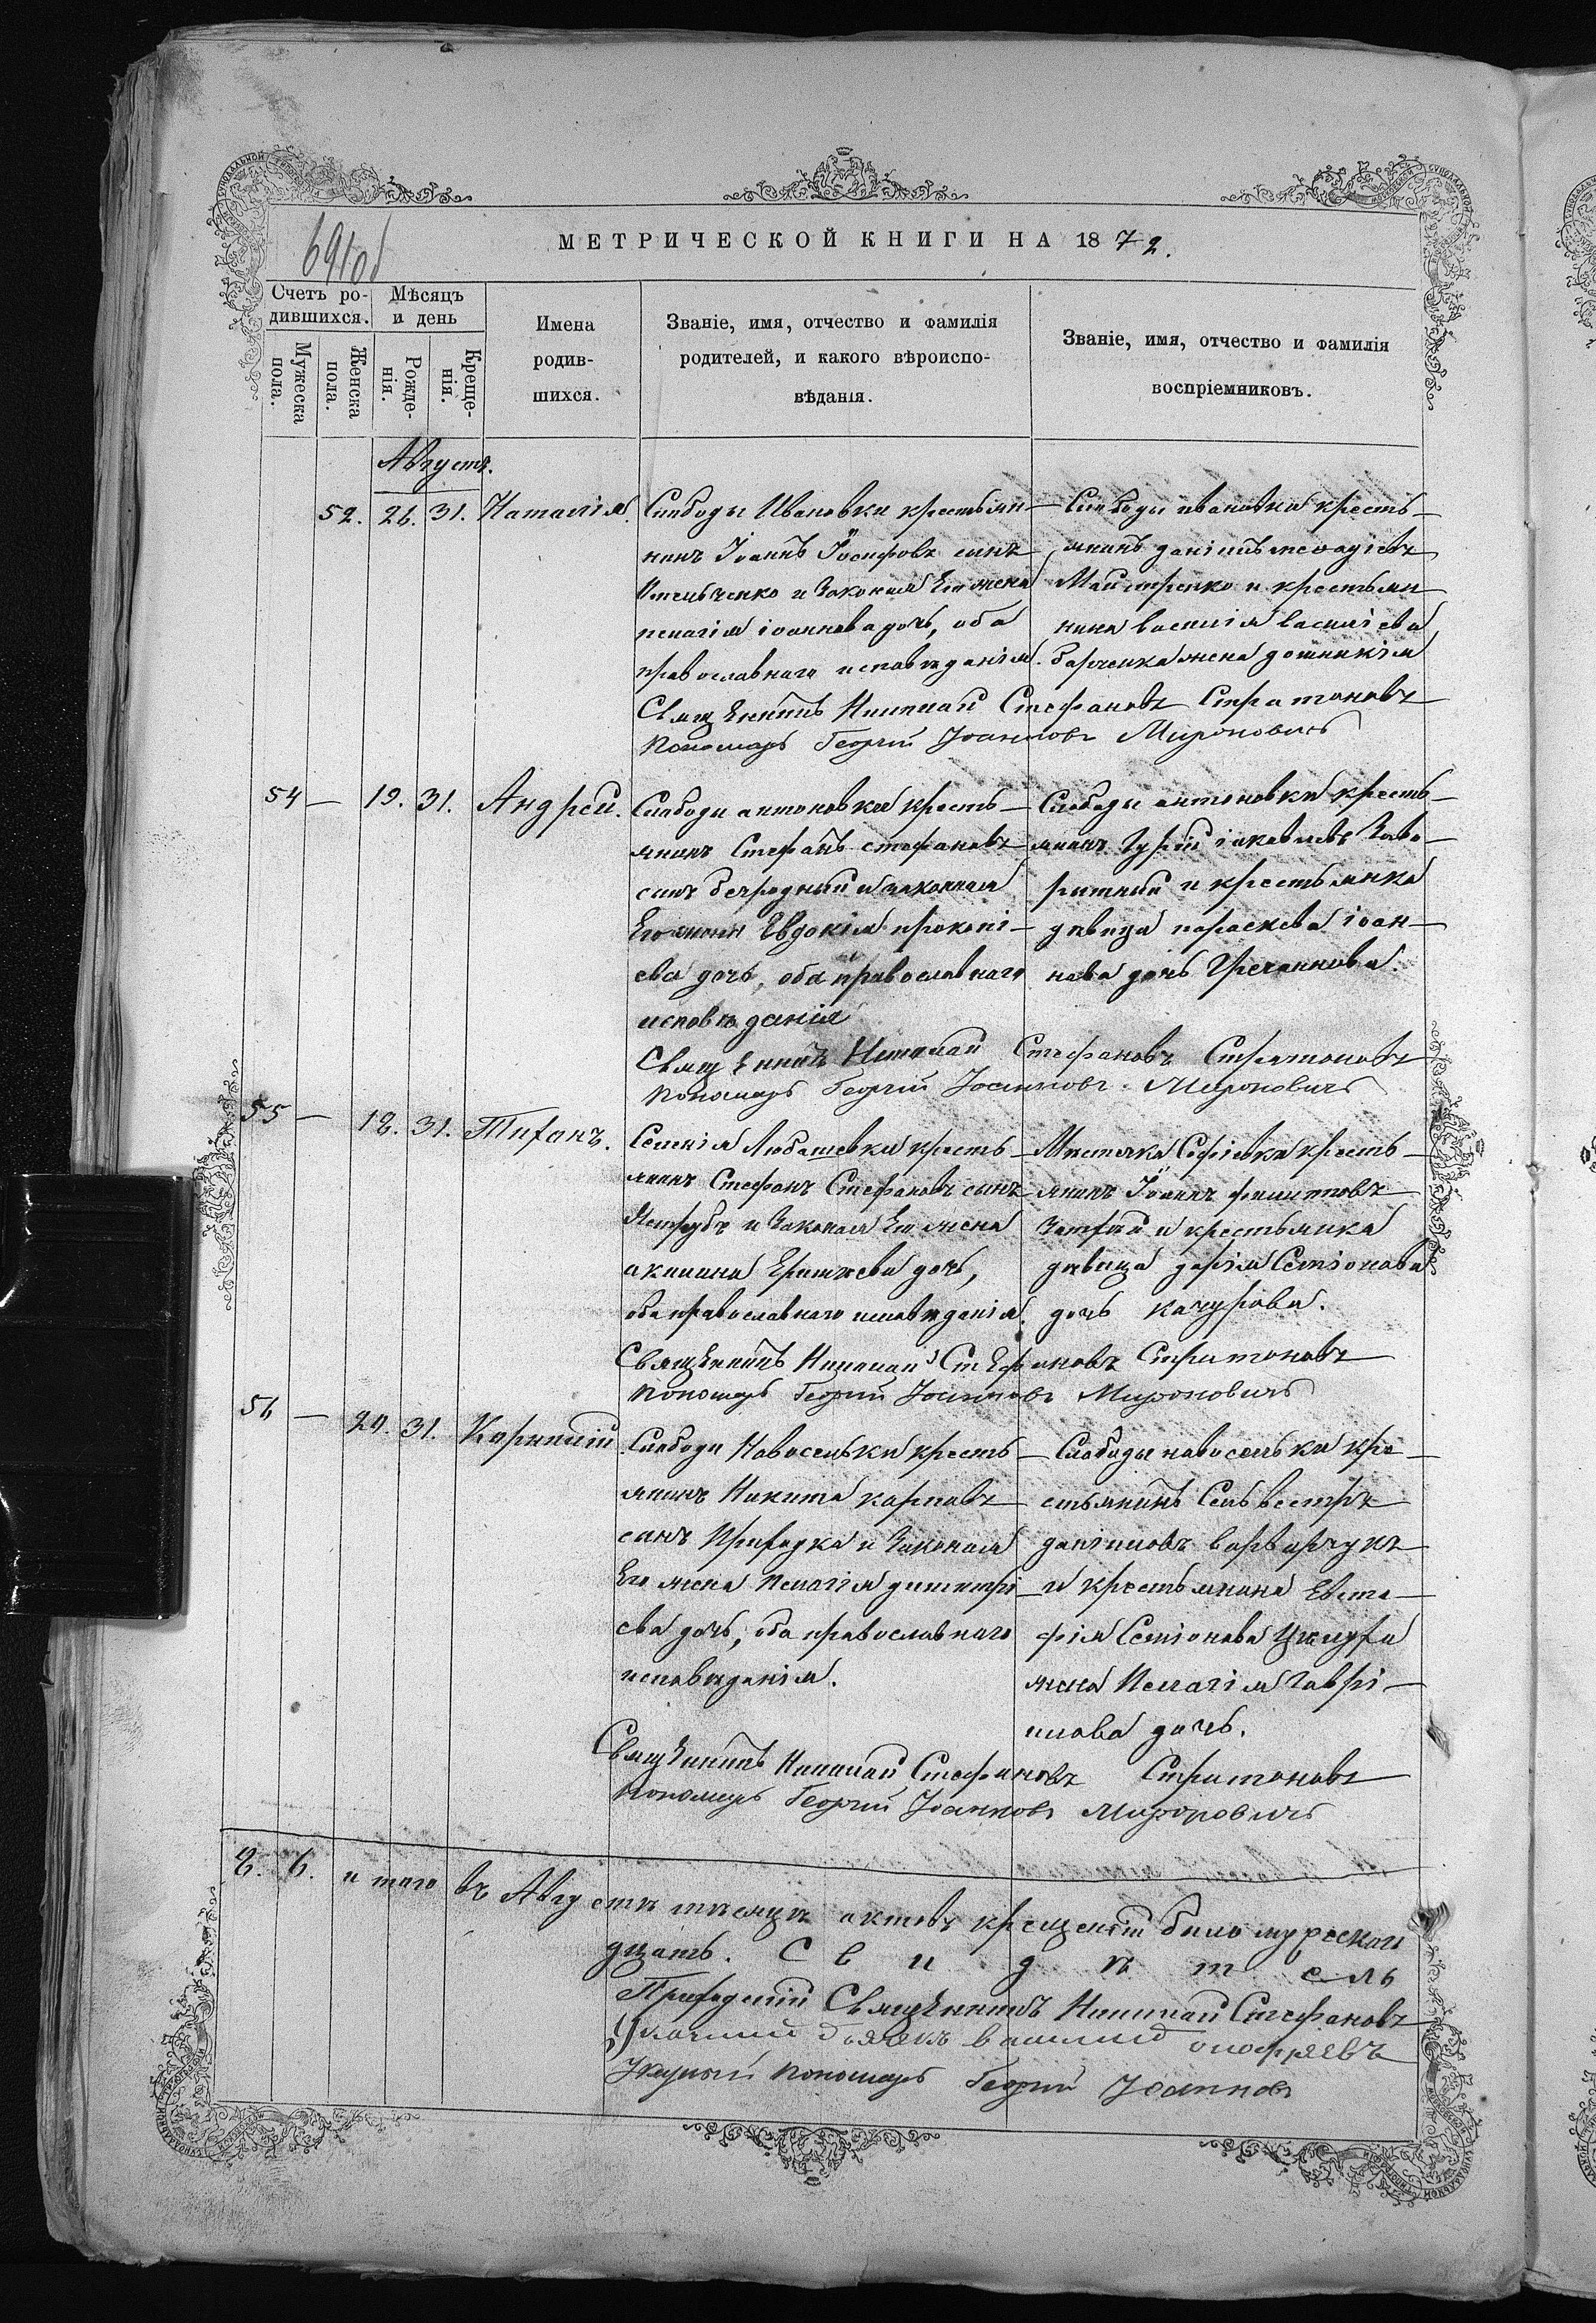 691об
МЕТРИЧЕСКОЙ КНИГИ НА 1872.
Счетъ ро-
дившихся.
Мѣсяцъ
и день
Мужеска
пола.
Женска
пола.
Рожде-
нія.
Креще-
нія.
Имена
родив-
шихся.
Званіе, имя, отчество и фамилія
родителей, и какого вѣроиспо-
вѣданія.
Званіе, имя, отчество и фамилія
воспріемниковъ.
Августъ.
52. 26. 31. Наталія.
Слободы Ивановки крестьян-
нинъ Іоаннъ Іосифовъ сынъ
и Законая Его жена
пелагія іоаннова дочь, оба
православнаго исповѣданія.
Слободы ивановки кресть-
янинъ даніилъ
Майстренко и крестьян-
нина василія василіева
жена домникія
Священникъ Николай Стефановъ Стратоновъ
Пономарь Георгій Іоанновъ Мироновичъ
54 — 19. 31. Андрей.
Слободы антоновки кресть-
янинъ Стефанъ стефановъ
сынъ безродный и законная
Его жена Евдокія прокопі-
ева дочь, оба православнаго
исповѣданія
Слободы антоновки кресть-
янинъ Гурій іаковлевъ Гово-
ритный и крестьянка
дѣвица параскева іоан-
нова дочь Гречаннова.
Священникъ Николай Стефановъ Стратоновъ
Пономарь Георгій Іоанновъ Мироновичъ
55 — 18. 31. Тихонъ.
Селенія Любашевки кресть-
янинъ Стефанъ Стефановъ сынъ
Яструбъ и Законая Его жена
акилина дочь,
оба православнаго исповѣданія.
Мѣстечка Софіевки кресть-
янинъ Іоаннъ филиповъ
и крестьянка
дѣвица дарія Семіонова
дочь качурова.
Священникъ Николай Стефановъ Стратоновъ
Пономарь Георгій Іоанновъ Мироновичъ
56 — 20. 31. Корнилій
Слободы Новоселовки кресть-
янинъ Никита карповъ
сынъ Приходка и Законая
Его жена Пелагія димитрі-
ева дочь, оба православнаго
исповѣданія.
Слободы новоселовки кре-
стьянинъ Селвестръ
даніиловъ варварчукъ
и крестьянина Евста-
фія Семіонова
жена Пелагія Гаврі-
илова дочь.
Священникъ Николай Стефановъ Стратоновъ
Пономарь Георгій Іоанновъ Мироновичъ
8. 6. итого въ Августѣ мѣсяцѣ актовъ крещеній было мужескаго
С в и д ѣ т е л ь
Приходскій Священникъ Николай Стефановъ
Пономарь Георгій Іоанновъ